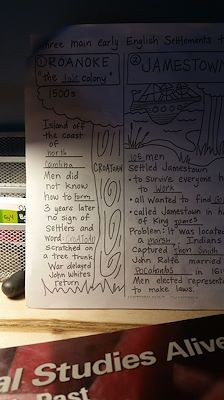 Three main early English Settlements
① ROANOKE
"the lost colony"
1500s
Island off
the coast
of
north
Carolina
Men did
not know
how to farm
3 years later
no sign of
settlers and
word: CROATOAN
Scratched on
a tree trunk.
War delayed
John White's
return
CROATOAN
② JAMESTOWN
105 men
Settled Jamestown
• to survive everyone h
to work
• all wanted to find
• called Jamestown in h
of King James
Problem: It was located
a marsh, Indians
captured John Smith
John Rolfe married
Pocahontas in 161
Men elected represent
to make laws.
al Studies Alive
Past